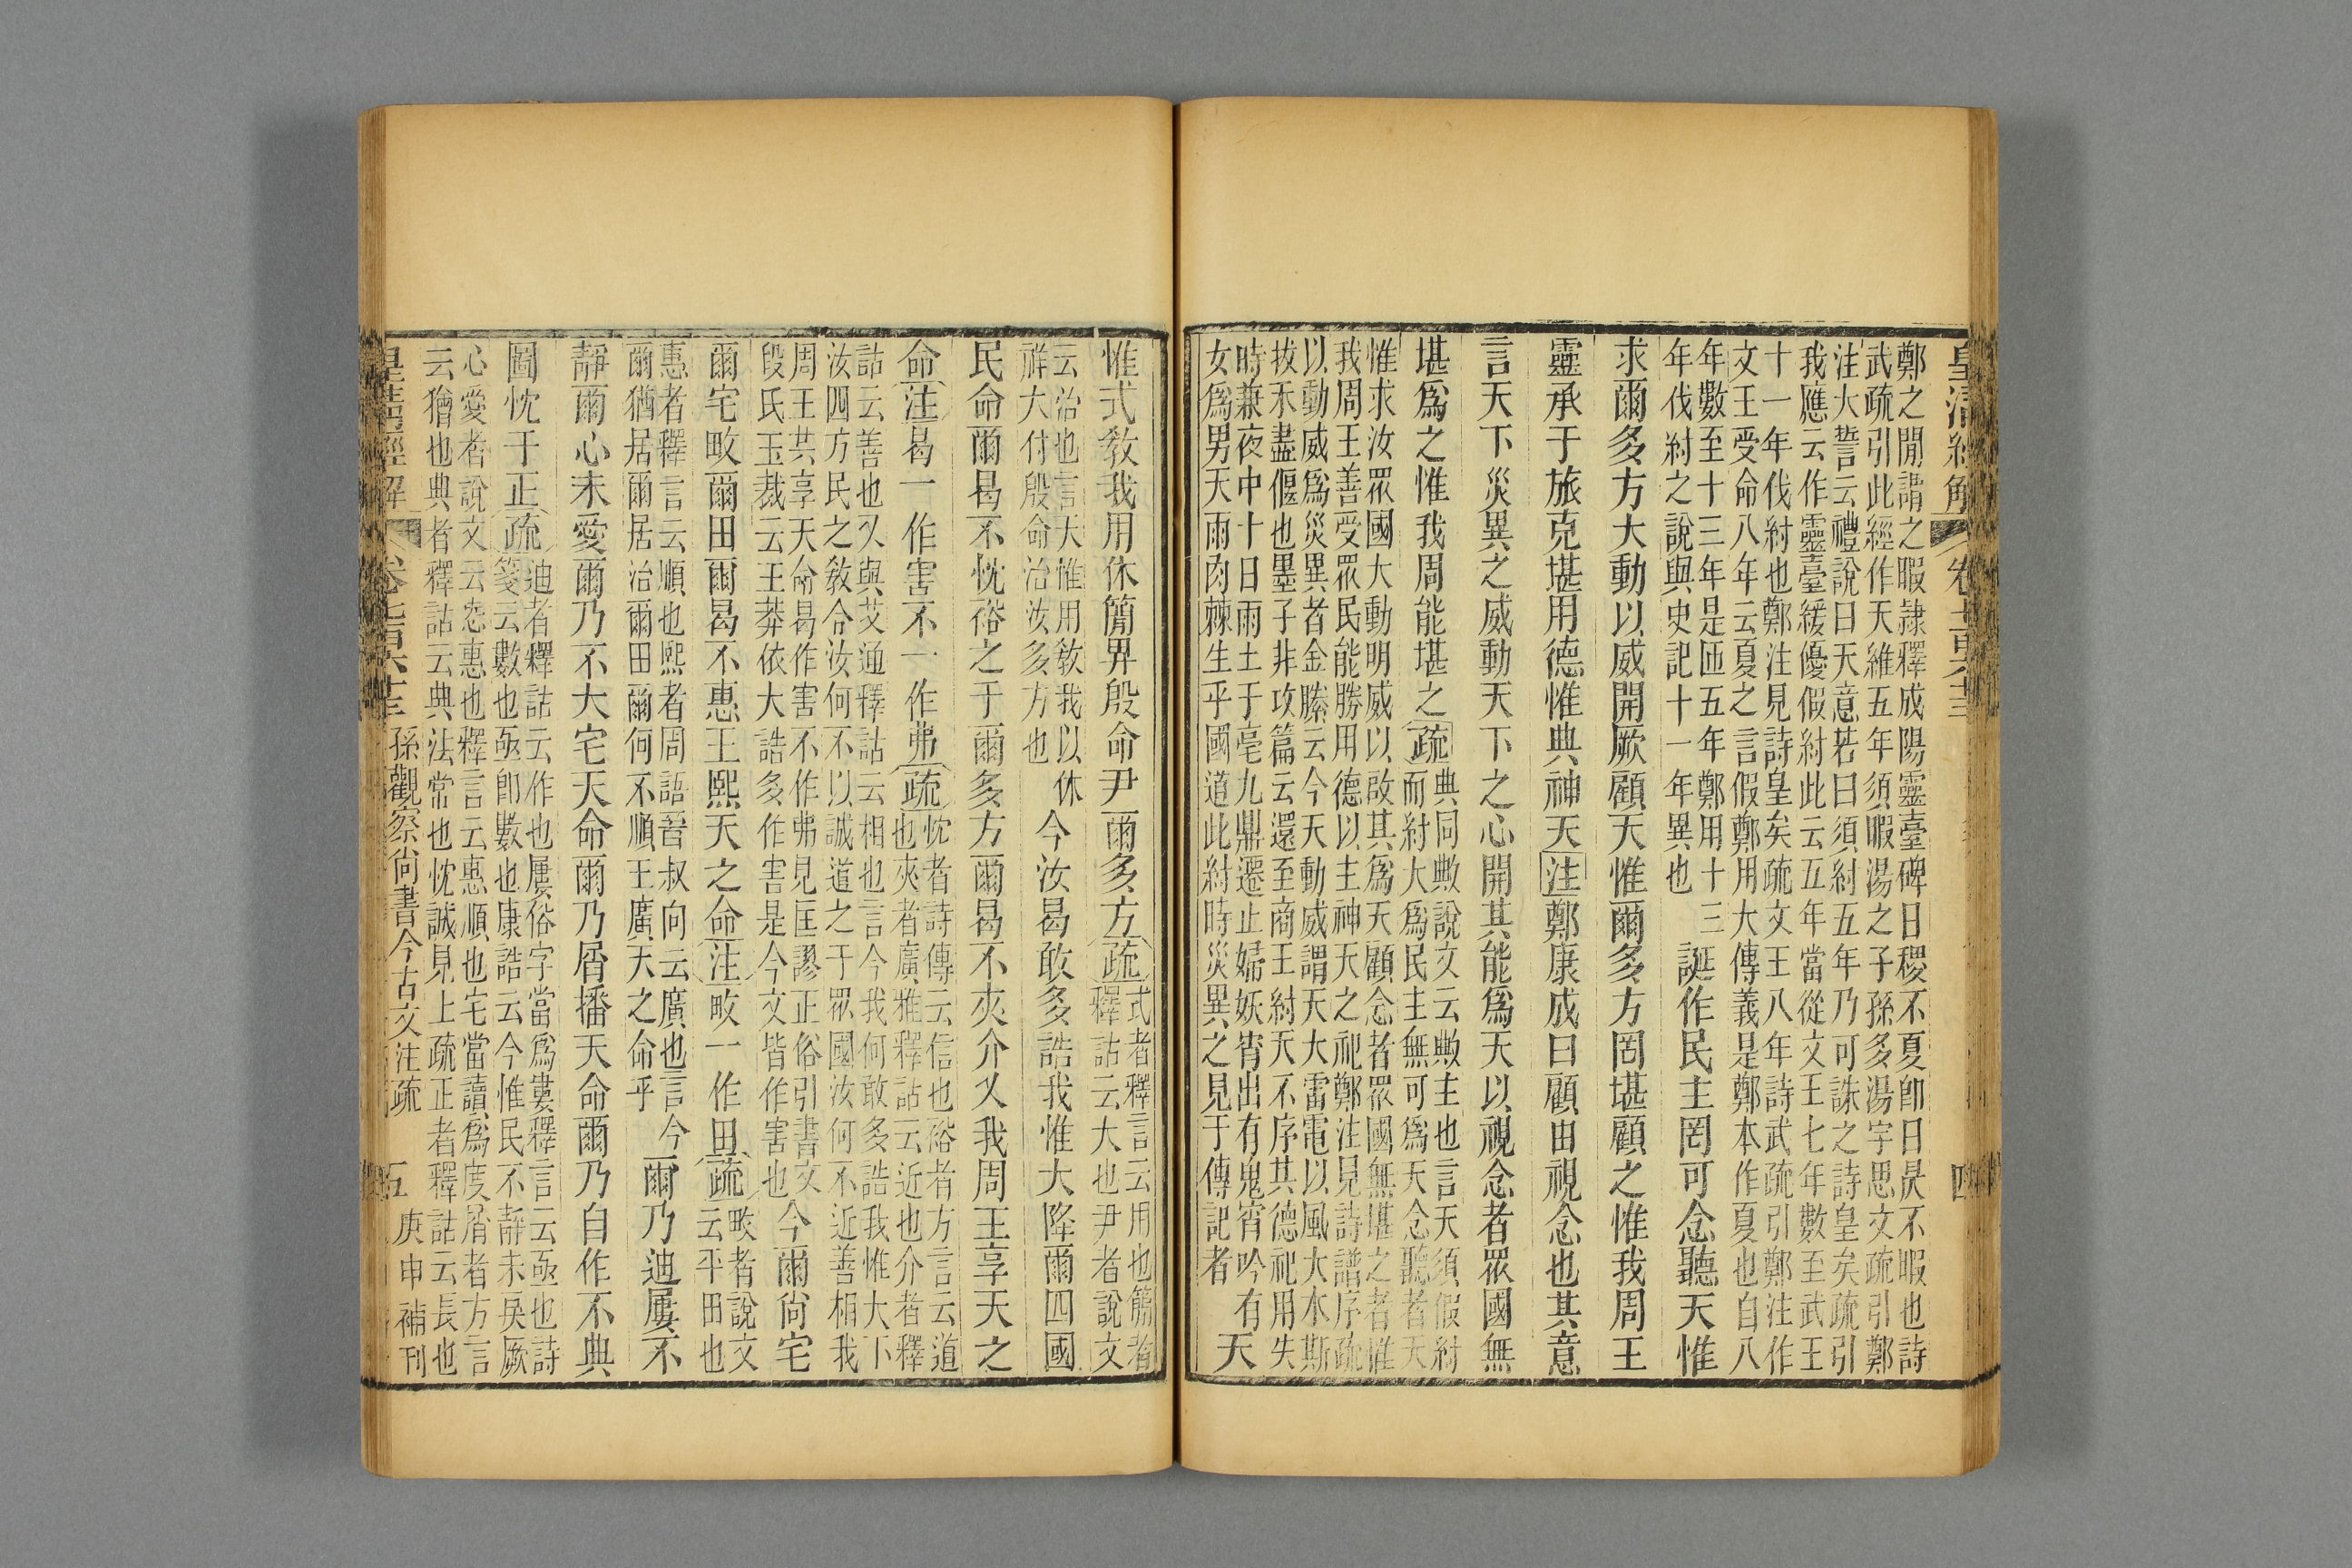 鄭之閒謂之暇隷釋成陽靈臺碑日稷不夏卽日昃不暇也詩
武疏引此經作天維五年須暇湯之子孫多湯字思文疏引鄭
注大誓云禮說曰天意若曰須紂五年乃可誅之詩皇矣疏引
我應云作靈臺緩優假紂此云五年當從文王七年數至武王
十一年伐紂也鄭注見詩皇矣疏文王八年詩武疏引鄭注作
文王受命八年云夏之言假鄭用大傳義是鄭本作夏也自八
年數至十三年是匝五年鄭用十三
年伐紂之說與史記十一年異也
誕作民主罔可念聽天惟
求爾多方大動以威開厥顧天惟爾多方罔堪顧之惟我周王
靈承于旅克堪用德惟典神天注鄭康成曰顧由視念也其意
言天下災異之威動天下之心開其能爲天以視念者眾國無
堪爲之惟我周能堪之疏
典同敟說文云敟主也言天須假紂
而紂大爲民主無可爲天念聽者天
惟求汝眾國大動明威以啟其爲天顧念者眾國無堪之者惟
我周王善受眾民能勝用德以主神天之祀鄭注見詩譜序疏
以動威爲災異者金縢云今天動威謂天大雷電以風大木斯
拔禾盡偃也墨子非攻篇云還至商王紂天不序其德祀用失
時兼夜中十日雨土于亳九鼎遷止婦妖宵出有鬼宵吟有
女爲男天雨肉棘生乎國道此紂時災異之見于傳記者
天
惟式敎我用休簡畀殷命尹爾多方疏
式者釋言云用也簡者
釋詁云大也尹者說文
云治也言天惟用敎我以休
祥大付殷命治汝多方也
今汝曷敢多誥我惟大降爾四國
民命爾曷不忱裕之于爾多方爾曷不夾介乂我周王享天之
命注曷一作害不一作弗疏
忱者詩傳云信也裕者方言云道
也夾者廣雅釋詁云近也介者釋
詁云善也乂與艾通釋詁云相也言今我何敢多誥我惟大下
汝四方民之敎令汝何不以誠道之于眾國汝何不近善相我
周王共享天命曷作害不作弗見匡謬正俗引書文
段氏玉裁云王莽依大誥多作害是今文皆作害也
今爾尙宅
爾宅畋爾田爾曷不惠王熙天之命注畋一作田疏
畋者說文
云平田也
惠者釋言云順也熙者周語晉叔向云廣也言今
爾猶居爾居爾治爾田爾何不順王廣天之命乎
爾乃迪屢不
靜爾心未愛爾乃不大宅天命爾乃屑播天命爾乃自作不典
圖忱于正疏
迪者釋詁云作也屢俗字當爲婁釋言云亟也詩
箋云數也亟卽數也康誥云今惟民不靜未戾厥
心愛者說文云㤅惠也釋言云惠順也宅當讀爲度屑者方言
云獪也典者釋詁云典法常也忱誠見上疏正者釋詁云長也
孫觀察尙書今古文注疏
五
庚申補刊